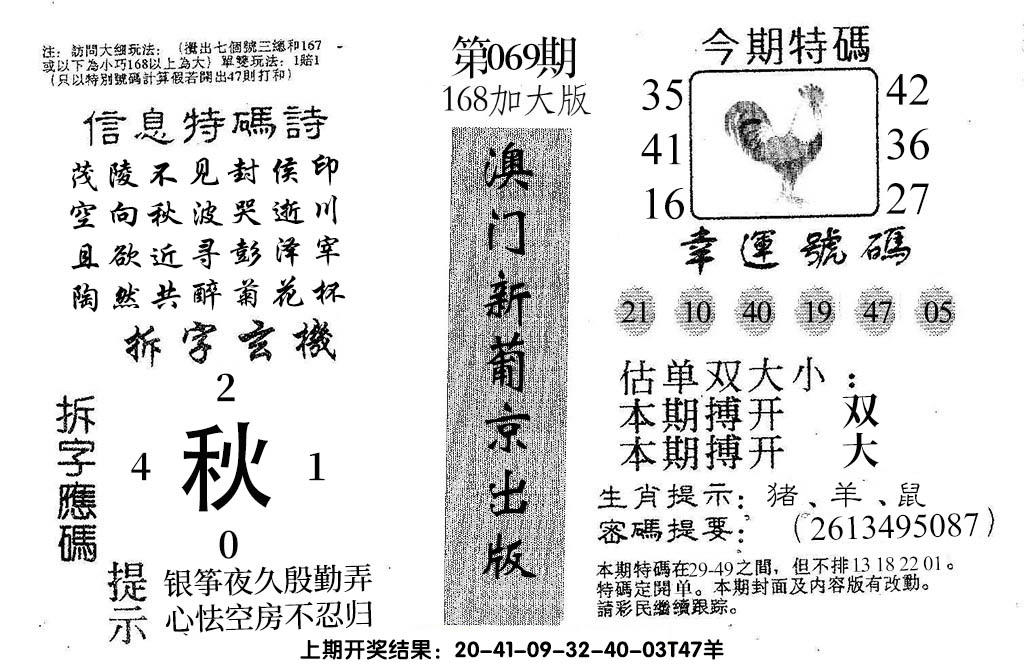 注：訪問大细玩法：（攪出七個號三總和167
或以下為小巧168以上為大）單雙玩法：1賠1
（只以特別號碼計算假若開出47則打和）
信息特碼詩
茂陵不见封侯印
空向秋波哭逝川
且欲近寻彭泽宰
陶然共醉菊花杯
拆字玄機
拆字應碼
2
4 秋 1
0
提示
银筝夜久殷勤弄
心怯空房不忍归
第069期
168加大版
澳门新葡京出版
今期特碼
35 42
41 36
16 27
幸運號碼
21 10 40 19 47 05
估单双大小：
本期搏开 双
本期搏开 大
生肖提示：猪、羊、鼠
密碼提要：（2613495087）
本期特碼在29-49之間，但不排13 18 22 01。
特碼定開单。本期封面及内容版有改動。
請彩民繼續跟踪。
上期开奖结果：20-41-09-32-40-03T47羊